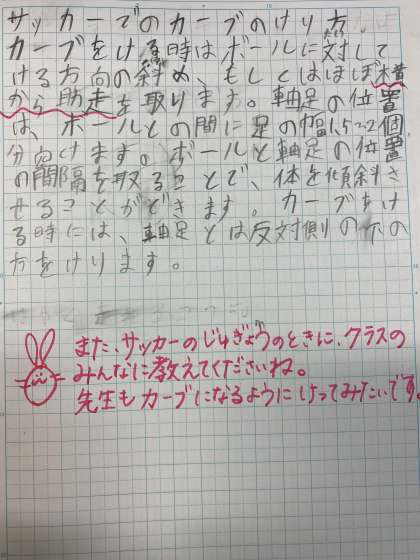 サッカーでのカーブのけり方。
カーブをける時はボールに対して
ける方向の斜め、もしくはほぼ横
から助走を取ります。軸足の位置
は、ボールとの間に足の幅1,5~2個
分空けます。ボールと軸足の位置
の間隔を取ることで、体を傾斜さ
せることができます。カーブをけ
る時には、軸足とは反対側の下の
方をけります。
また、サッカーのじゅぎょうのときに、クラスの
みんなに教えてくださいね。
先生もカーブになるようにけってみたいです。